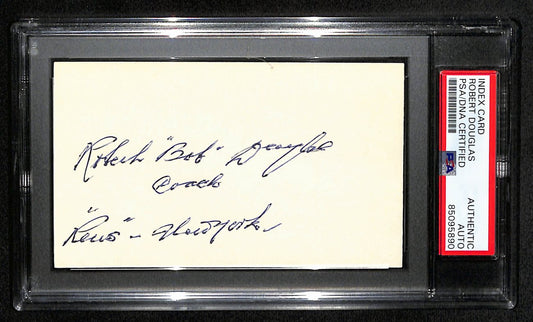 Robert "Bob" Douglas
Coach
"Rens" - New York -
INDEX CARD
ROBERT DOUGLAS
PSA/DNA CERTIFIED
AUTHENTIC
AUTO
85095890
PSA